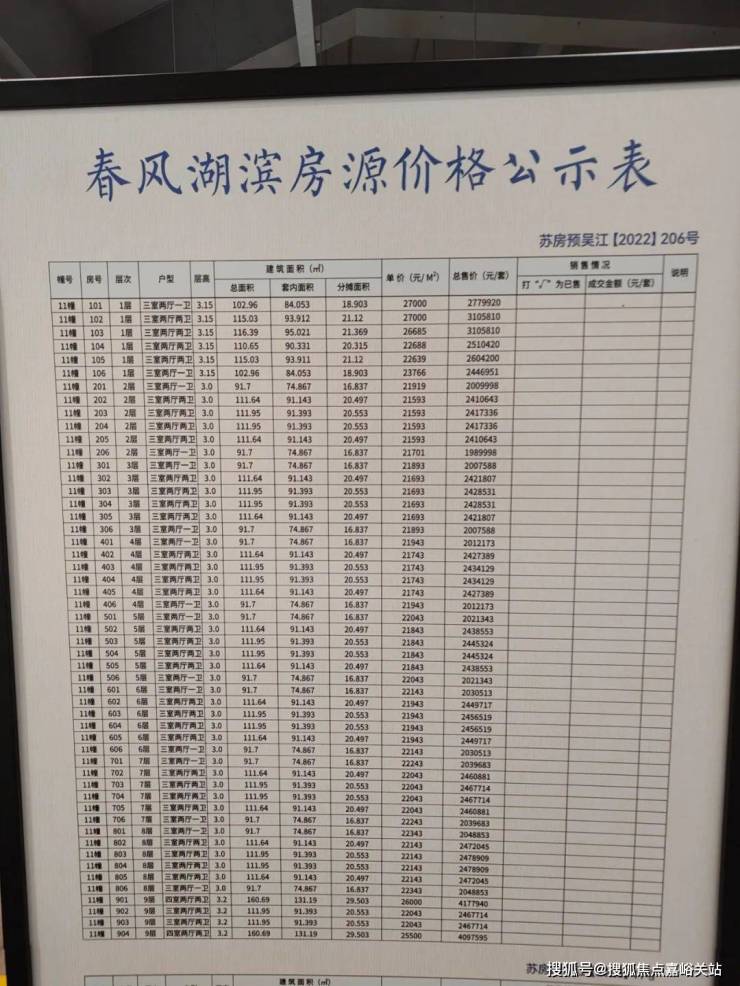 春风湖滨房源价格公示表
苏房预吴江【2022】206号
幢号 房号 层次 户型 层高 建筑面积（㎡） 单价（元/M²） 总售价（元/套） 销售情况 说明
总面积 套内面积 分摊面积 打“√”为已售 成交金额（元/套）
11幢 101 1层 三室两厅一卫 3.15 102.96 84.053 18.903 27000 2779920
11幢 102 1层 三室两厅两卫 3.15 115.03 93.912 21.12 27000 3105810
11幢 103 1层 三室两厅两卫 3.15 116.39 95.021 21.369 26685 3105810
11幢 104 1层 三室两厅两卫 3.15 110.65 90.331 20.315 22688 2510420
11幢 105 1层 三室两厅两卫 3.15 115.03 93.911 21.12 22639 2604200
11幢 106 1层 三室两厅一卫 3.15 102.96 84.053 18.903 23766 2446951
11幢 201 2层 三室两厅一卫 3.0 91.7 74.867 16.837 21919 2009998
11幢 202 2层 三室两厅两卫 3.0 111.64 91.143 20.497 21593 2410643
11幢 203 2层 三室两厅两卫 3.0 111.95 91.393 20.553 21593 2417336
11幢 204 2层 三室两厅两卫 3.0 111.95 91.393 20.553 21593 2417336
11幢 205 2层 三室两厅两卫 3.0 111.64 91.143 20.497 21593 2410643
11幢 206 2层 三室两厅一卫 3.0 91.7 74.867 16.837 21701 1989998
11幢 301 3层 三室两厅一卫 3.0 91.7 74.867 16.837 21893 2007588
11幢 302 3层 三室两厅两卫 3.0 111.64 91.143 20.497 21693 2421807
11幢 303 3层 三室两厅两卫 3.0 111.95 91.393 20.553 21693 2428531
11幢 304 3层 三室两厅两卫 3.0 111.95 91.393 20.553 21693 2428531
11幢 305 3层 三室两厅两卫 3.0 111.64 91.143 20.497 21693 2421807
11幢 306 3层 三室两厅一卫 3.0 91.7 74.867 16.837 21893 2007588
11幢 401 4层 三室两厅一卫 3.0 91.7 74.867 16.837 21943 2012173
11幢 402 4层 三室两厅两卫 3.0 111.64 91.143 20.497 21743 2427389
11幢 403 4层 三室两厅两卫 3.0 111.95 91.393 20.553 21743 2434129
11幢 404 4层 三室两厅两卫 3.0 111.95 91.393 20.553 21743 2434129
11幢 405 4层 三室两厅两卫 3.0 111.64 91.143 20.497 21743 2427389
11幢 406 4层 三室两厅一卫 3.0 91.7 74.867 16.837 21943 2012173
11幢 501 5层 三室两厅一卫 3.0 91.7 74.867 16.837 22043 2021343
11幢 502 5层 三室两厅两卫 3.0 111.64 91.143 20.497 21843 2438553
11幢 503 5层 三室两厅两卫 3.0 111.95 91.393 20.553 21843 2445324
11幢 504 5层 三室两厅两卫 3.0 111.95 91.393 20.553 21843 2445324
11幢 505 5层 三室两厅两卫 3.0 111.64 91.143 20.497 21843 2438553
11幢 506 5层 三室两厅一卫 3.0 91.7 74.867 16.837 22043 2021343
11幢 601 6层 三室两厅一卫 3.0 91.7 74.867 16.837 22143 2030513
11幢 602 6层 三室两厅两卫 3.0 111.64 91.143 20.497 21943 2449717
11幢 603 6层 三室两厅两卫 3.0 111.95 91.393 20.553 21943 2456519
11幢 604 6层 三室两厅两卫 3.0 111.95 91.393 20.553 21943 2456519
11幢 605 6层 三室两厅两卫 3.0 111.64 91.143 20.497 21943 2449717
11幢 606 6层 三室两厅一卫 3.0 91.7 74.867 16.837 22143 2030513
11幢 701 7层 三室两厅一卫 3.0 91.7 74.867 16.837 22243 2039683
11幢 702 7层 三室两厅两卫 3.0 111.64 91.143 20.497 22043 2460881
11幢 703 7层 三室两厅两卫 3.0 111.95 91.393 20.553 22043 2467714
11幢 704 7层 三室两厅两卫 3.0 111.95 91.393 20.553 22043 2467714
11幢 705 7层 三室两厅两卫 3.0 111.64 91.143 20.497 22043 2460881
11幢 706 7层 三室两厅一卫 3.0 91.7 74.867 16.837 22243 2039683
11幢 801 8层 三室两厅一卫 3.0 91.7 74.867 16.837 22343 2048853
11幢 802 8层 三室两厅两卫 3.0 111.64 91.143 20.497 22143 2472045
11幢 803 8层 三室两厅两卫 3.0 111.95 91.393 20.553 22143 2478909
11幢 804 8层 三室两厅两卫 3.0 111.95 91.393 20.553 22143 2478909
11幢 805 8层 三室两厅两卫 3.0 111.64 91.143 20.497 22143 2472045
11幢 806 8层 三室两厅一卫 3.0 91.7 74.867 16.837 22343 2048853
11幢 901 9层 四室两厅两卫 3.2 160.69 131.19 29.503 26000 4177940
11幢 902 9层 三室两厅两卫 3.2 111.95 91.393 20.553 22043 2467714
11幢 903 9层 三室两厅两卫 3.2 111.95 91.393 20.553 22043 2467714
11幢 904 9层 四室两厅两卫 3.2 160.69 131.19 29.503 25500 4097595
苏房
建筑面积（㎡）
搜狐号@搜狐焦点嘉峪关站